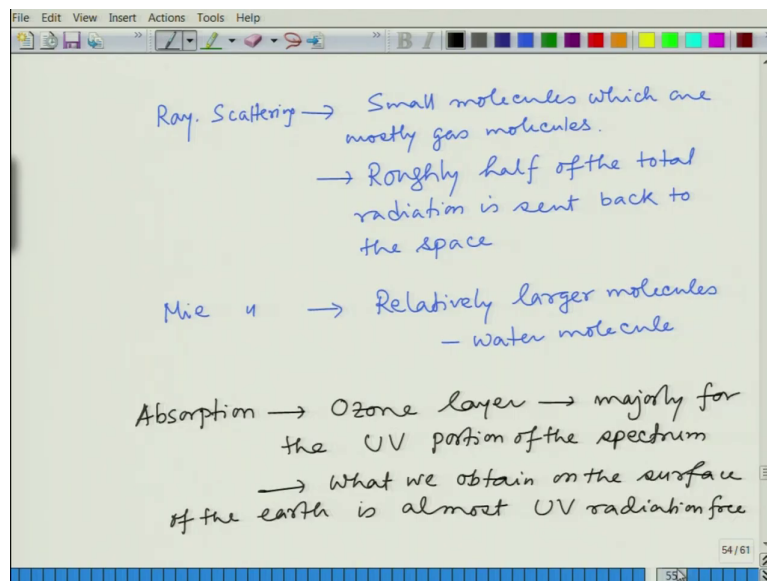 File Edit View Insert Actions Tools Help
Ray. Scattering → Small molecules which are
mostly gas molecules.
→ Roughly half of the total
radiation is sent back to
the space
Mie " → Relatively larger molecules
— water molecule
Absorption → Ozone layer → majorly for
the UV portion of the spectrum
→ What we obtain on the surface
of the earth is almost UV radiation free
54/61
55